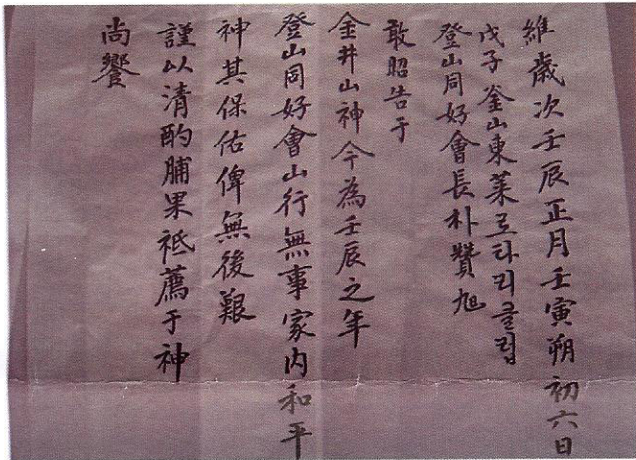 維歲次壬辰正月壬寅朔初六日
戊子釜山東萊로타리클럽
登山同好會長朴贊旭
敢昭告于
金井山神今為壬辰之年
登山同好會山行無事家內和平
神其保佑俾無後艱
謹以清酌脯果祗薦于神
尚饗